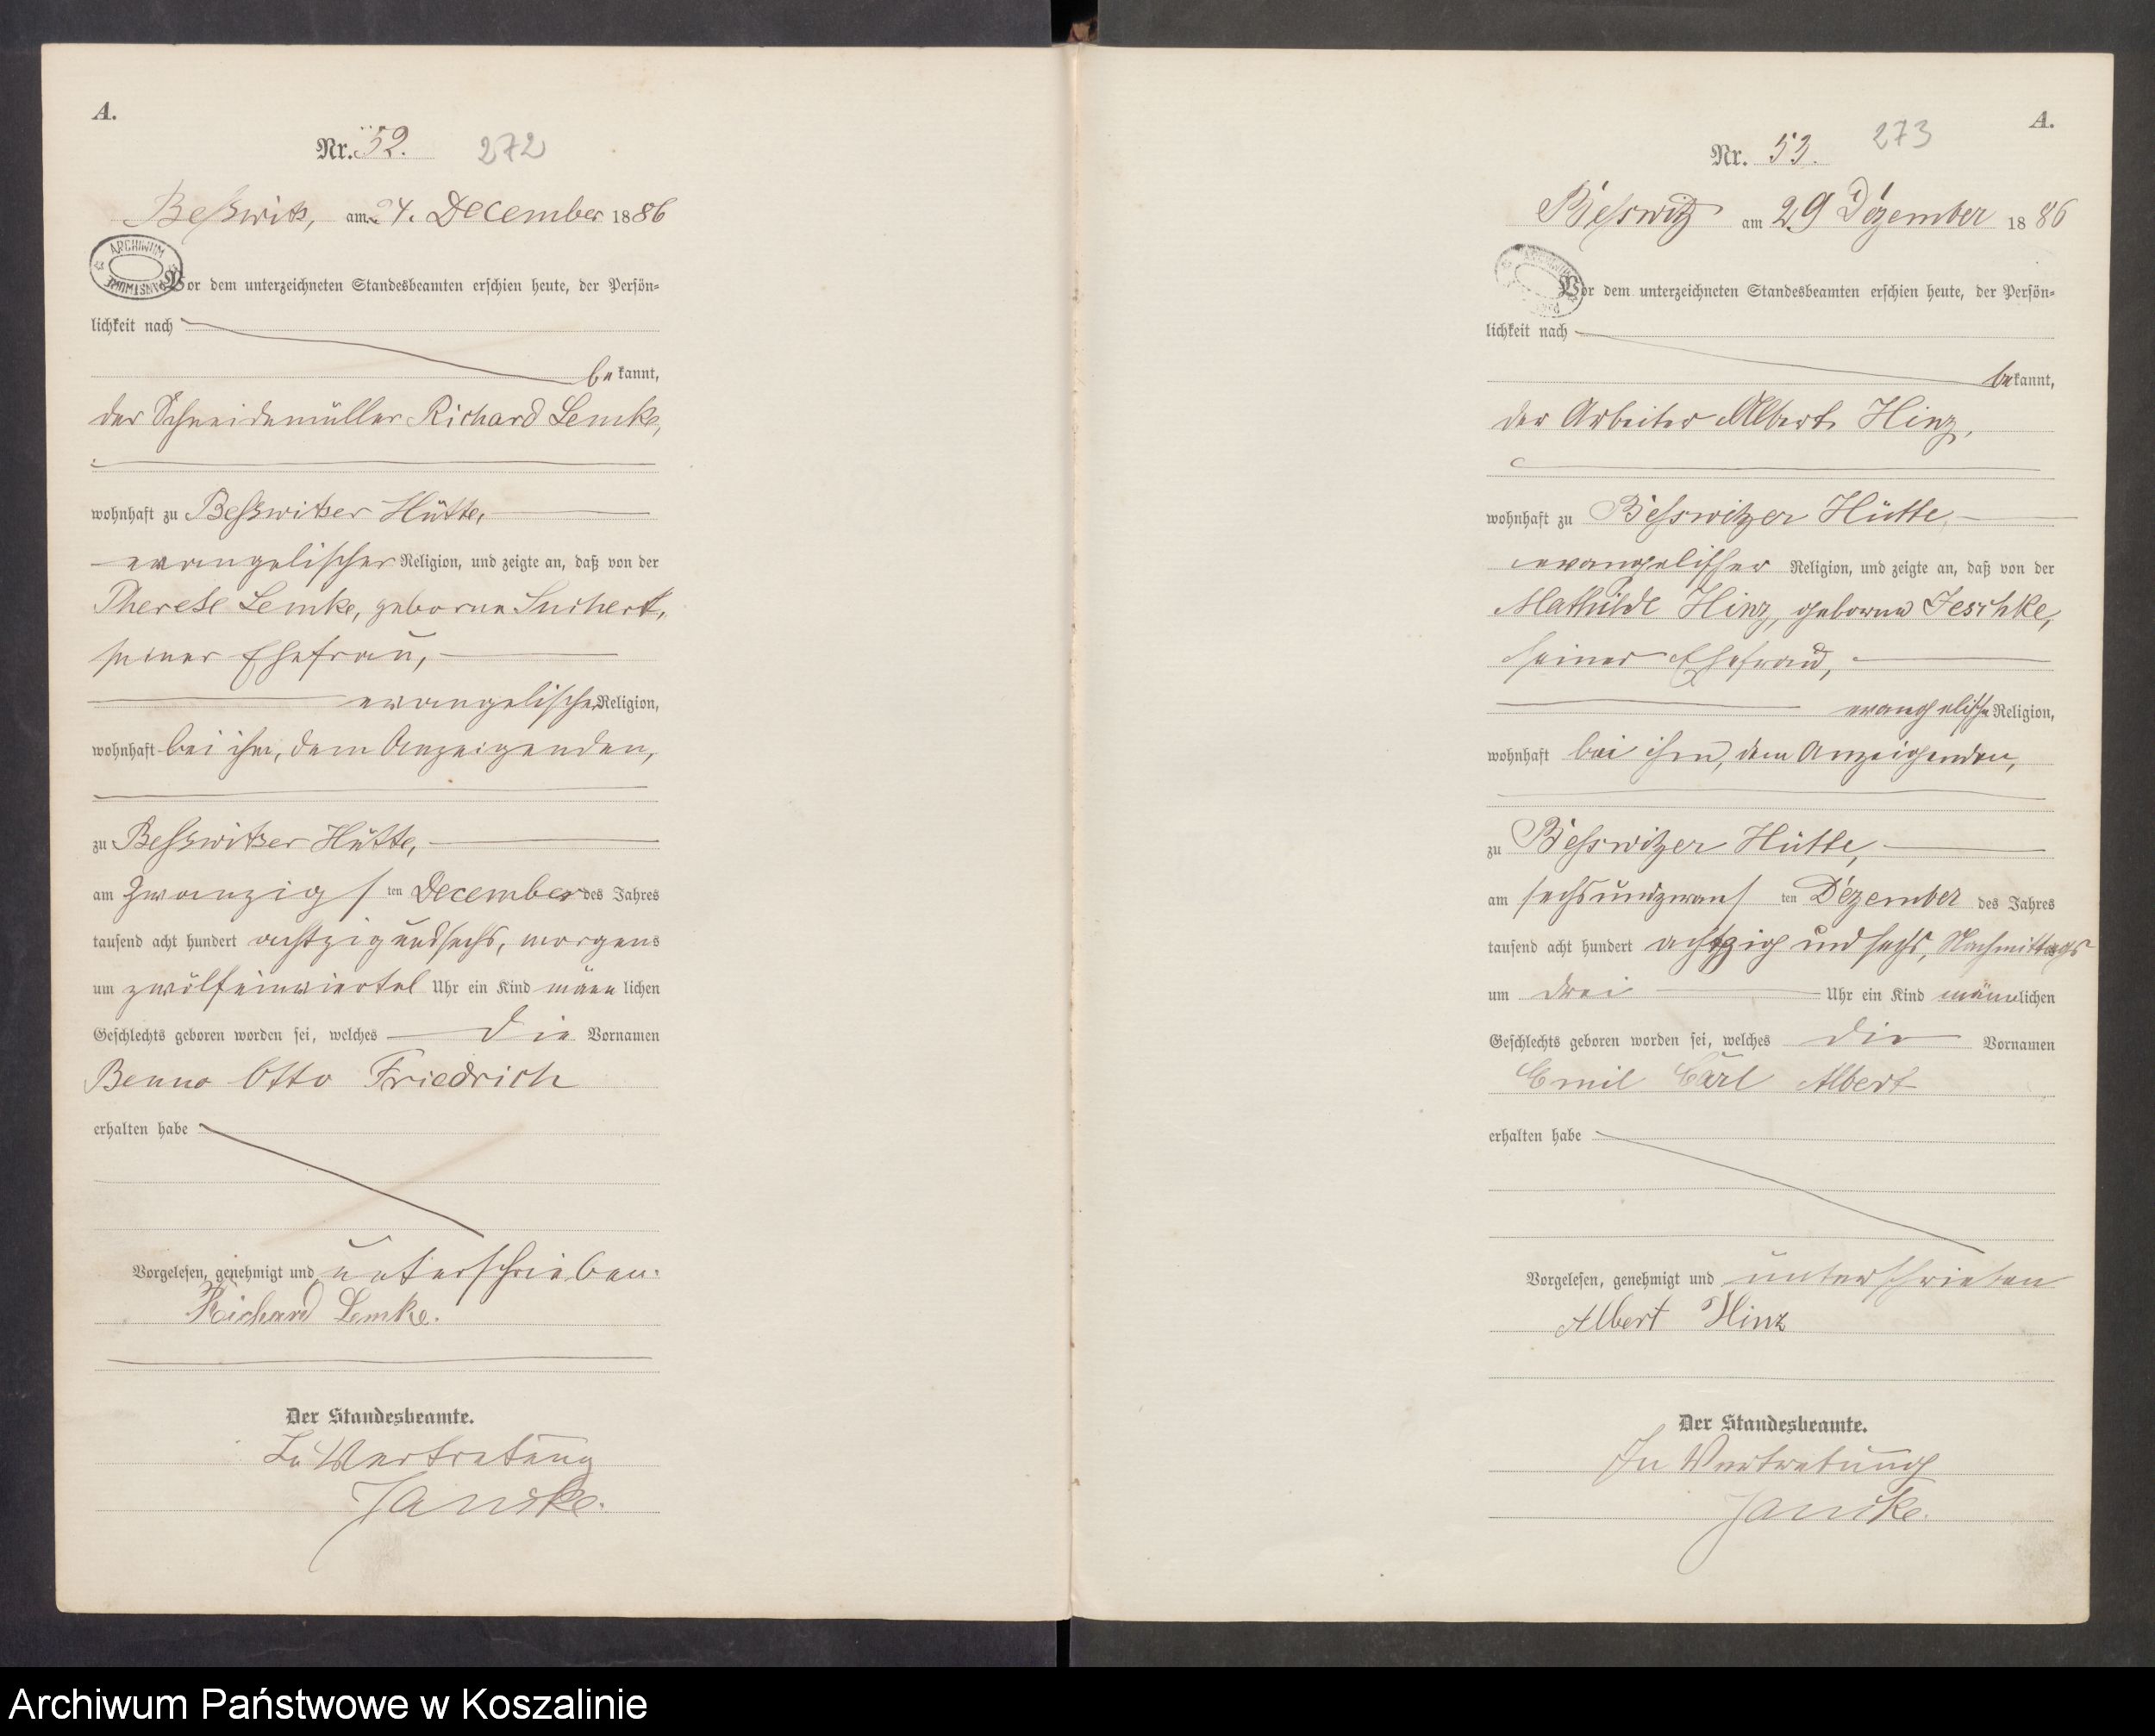 A.
Nr. 52.
272
Beßwitz, am 24. December 1886
ARCHIWUM PAŃSTWOWE
Vor dem unterzeichneten Standesbeamten erschien heute, der Persön=
lichkeit nach
bekannt,
der Schneidemüller Richard Lemke,
wohnhaft zu Beßwitzer Hütte,
evangelischer Religion, und zeigte an, daß von der
Therese Lemke, geborne Suchert,
seiner Ehefrau,
evangelischer Religion,
wohnhaft bei ihm, dem Anzeigenden,
zu Beßwitzer Hütte,
am zwanzigsten December des Jahres
tausend acht hundert achtzig und sechs, morgens
um zwölfeinviertel Uhr ein Kind männlichen
Geschlechts geboren worden sei, welches die Vornamen
Benno Otto Friedrich
erhalten habe
Vorgelesen, genehmigt und unterschrieben.
Richard Lemke.
Der Standesbeamte.
In Vertretung
A.
Nr. 53.
273
Besswitz am 29 Dezember 1886
ARCHIWUM
Vor dem unterzeichneten Standesbeamten erschien heute, der Persön=
lichkeit nach
bekannt,
der Arbeiter Albert Hinz,
wohnhaft zu Besswitzer Hütte,
evangelischer Religion, und zeigte an, daß von der
Mathilde Hinz, geborene Jeschke,
seiner Ehefrau,
evangelische Religion,
wohnhaft bei ihm, dem Anzeigenden,
zu Besswitzer Hütte,
am sechsundzwansten Dezember des Jahres
tausend acht hundert achtzig und sechs, Nachmittags
um drei Uhr ein Kind männlichen
Geschlechts geboren worden sei, welches die Vornamen
Emil Carl Albert
erhalten habe
Vorgelesen, genehmigt und unterschrieben
Albert Hinz
Der Standesbeamte.
In Vertretung
Archiwum Państwowe w Koszalinie